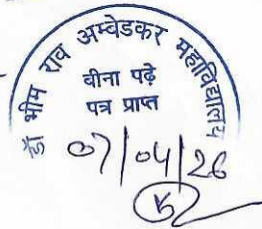 डॉ भीम राव अम्बेडकर महाविद्यालय
बीना पढ़े
पत्र प्राप्त
07/04/26